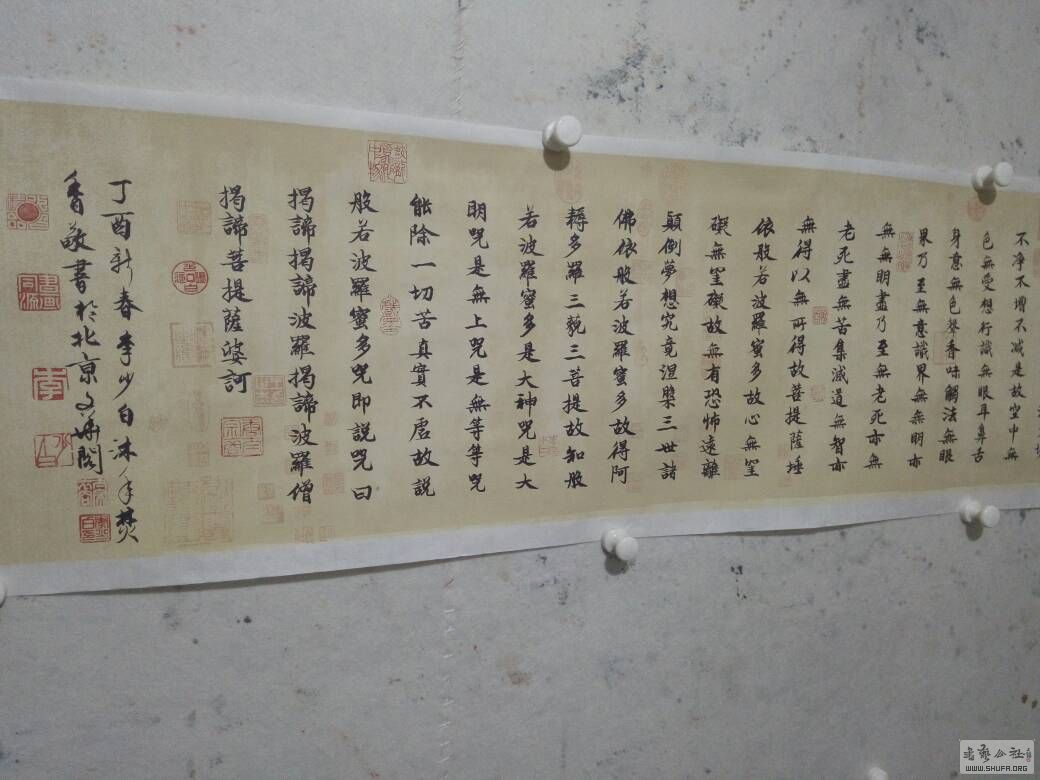 不淨不增不減是故空中無
色無受想行識無眼耳鼻舌
身意無色聲香味觸法無眼
界乃至無意識界無無明亦
無無明盡乃至無老死亦無
老死盡無苦集滅道無智亦
無得以無所得故菩提薩埵
依般若波羅蜜多故心無罣
礙無罣礙故無有恐怖遠離
顛倒夢想究竟涅槃三世諸
佛依般若波羅蜜多故得阿
耨多羅三藐三菩提故知般
若波羅蜜多是大神咒是大
明咒是無上咒是無等等咒
能除一切苦真實不虛故說
般若波羅蜜多咒即說咒曰
揭諦揭諦波羅揭諦波羅僧
揭諦菩提薩婆訶
丁酉新春李少白沐手焚
香敬書於北京文華閣
書畫同源
李
WWW.SHUFA.ORG